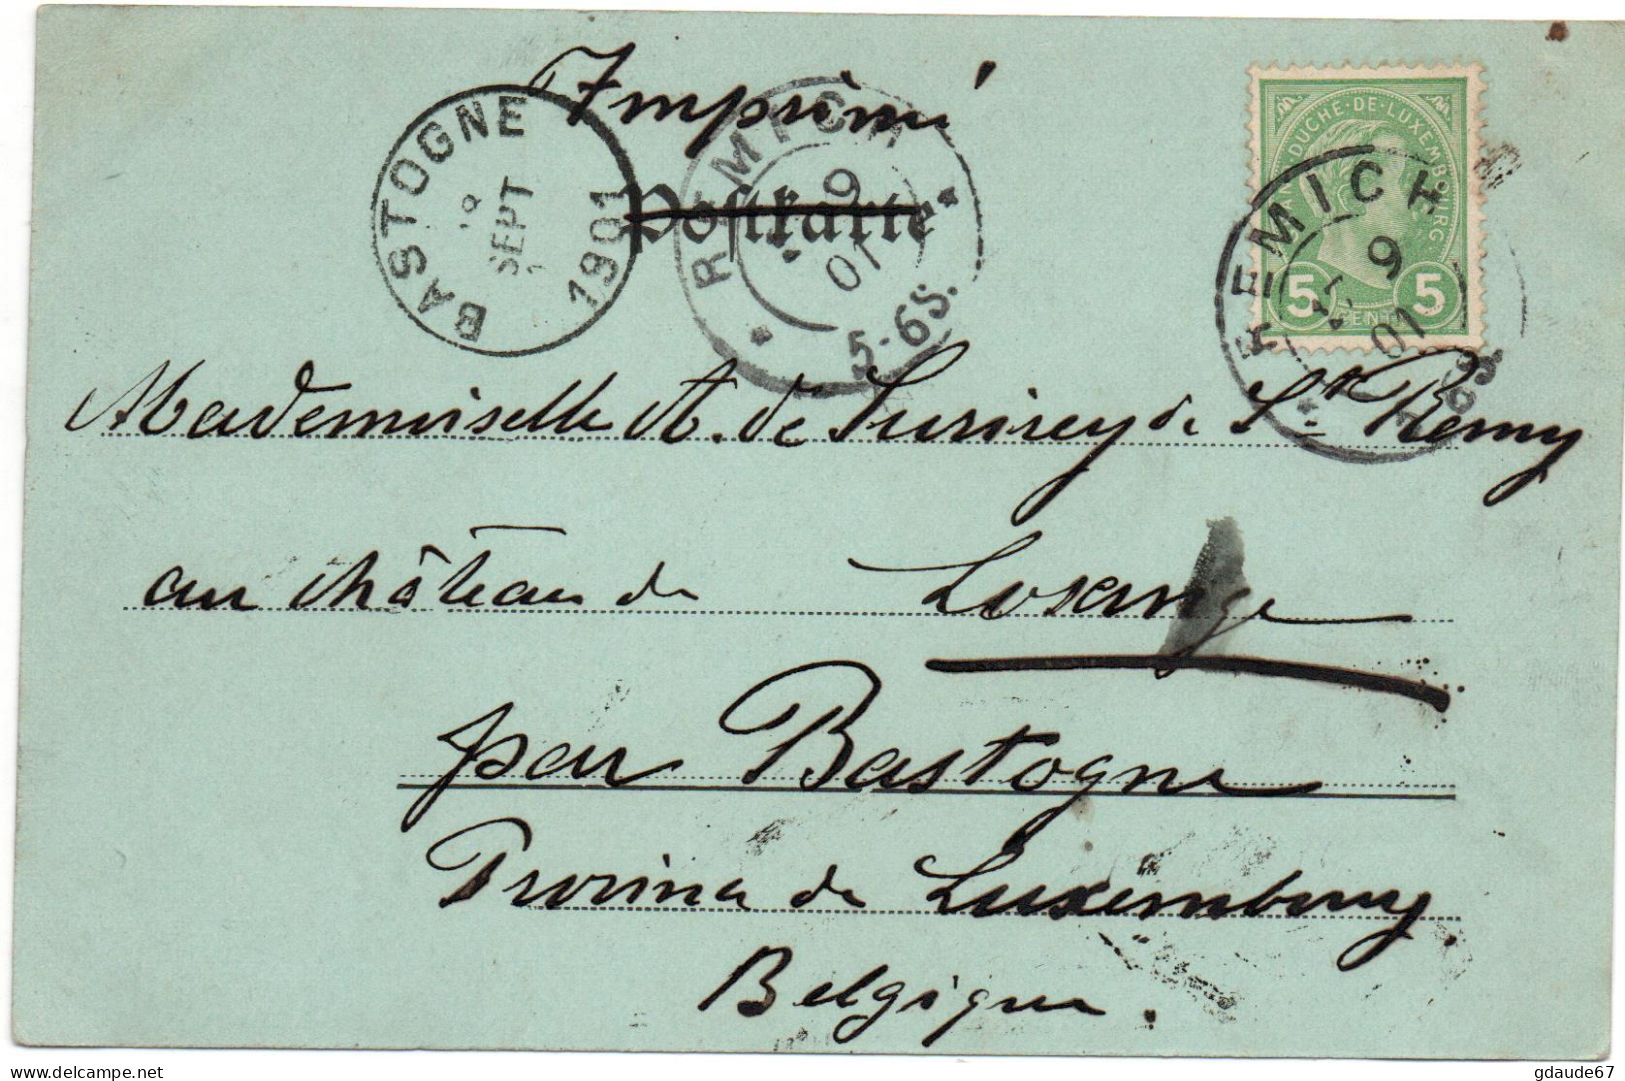 Imprimé
Postkarte
BASTOGNE
18
SEPT
1901
REMICH
9
01
5-6S.
GRAND DUCHE·DE·LUXEMBOURG
5 5
CENT
REMICH
9
01
Mademoiselle A. de Suricey de St. Remy
au château de Losange
par Bastogne
Province de Luxembourg.
Belgique.
delcampe.net
gdaude67